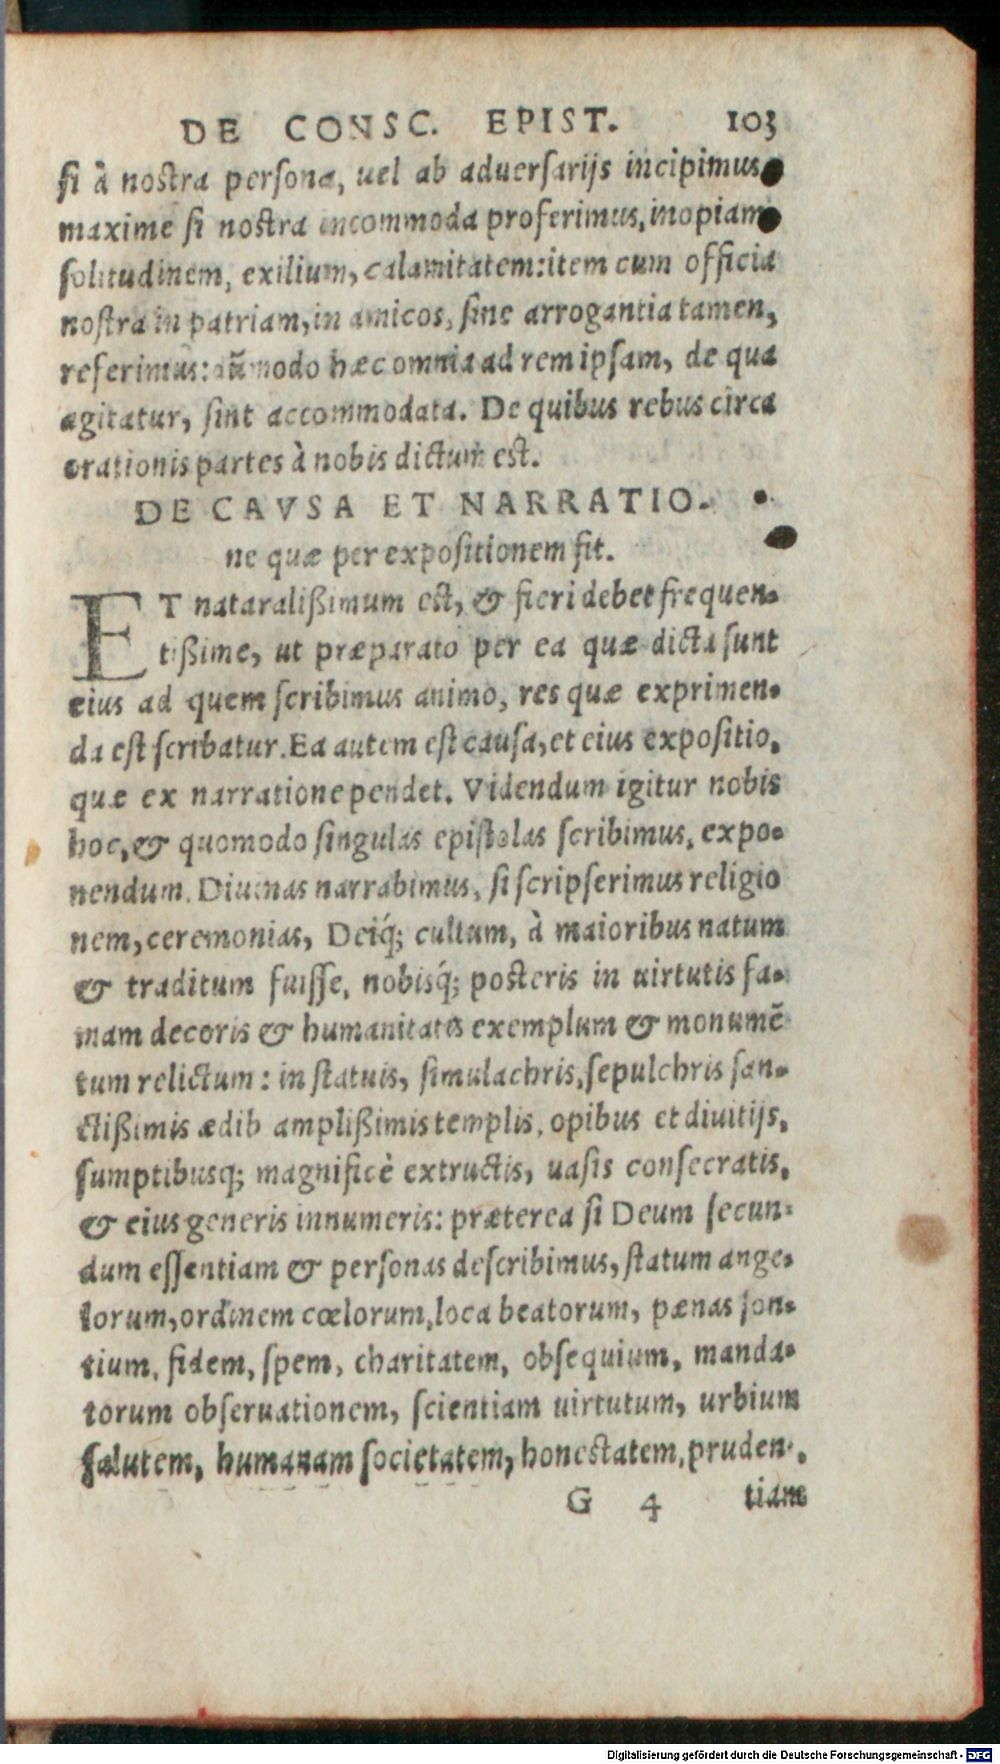 DE CONSC. EPIST. 103
ſi à noſtra perſona, uel ab aduerſarijs incipimus
maxime ſi noſtra incommoda proferimus, inopiam
ſolitudinem, exilium, calamitatem: item cum officia
noſtra in patriam, in amicos, ſine arrogantia tamen,
referimus: dũmodo hæc omnia ad rem ipſam, de qua
agitatur, ſint accommodata. De quibus rebus circa
orationis partes à nobis dictum eſt.
DE CAVSA ET NARRATIO-
ne quæ per expoſitionem fit.
ET nataralißimum eſt, & fieri debet frequen-
tißime, ut præparato per ea quæ dicta ſunt
eius ad quem ſcribimus animo, res quæ exprimen-
da eſt ſcribatur. Ea autem eſt cauſa, et eius expoſitio,
quæ ex narratione pendet. Videndum igitur nobis
hoc, & quomodo ſingulas epiſtolas ſcribimus, expo-
nendum. Diuinas narrabimus, ſi ſcripſerimus religio
nem, ceremonias, Deiq́; cultum, à maioribus natum
& traditum fuiſſe, nobisq́; poſteris in uirtutis fa-
mam decoris & humanitatis exemplum & monumẽ
tum relictum: in ſtatuis, ſimulachris, ſepulchris ſan-
ctißimis ædib amplißimis templis, opibus et diuitijs,
ſumptibusq; magnificè extructis, uaſis conſecratis,
& eius generis innumeris: præterea ſi Deum ſecun-
dum eſſentiam & perſonas deſcribimus, ſtatum ange-
lorum, ordinem cœlorum, loca beatorum, pænas ſon-
tium, fidem, ſpem, charitatem, obſequium, manda-
torum obſeruationem, ſcientiam uirtutum, urbium
ſalutem, humanam ſocietatem, honeſtatem, pruden-
G 4 tiam
Digitalisierung gefördert durch die Deutsche Forschungsgemeinschaft - DFG